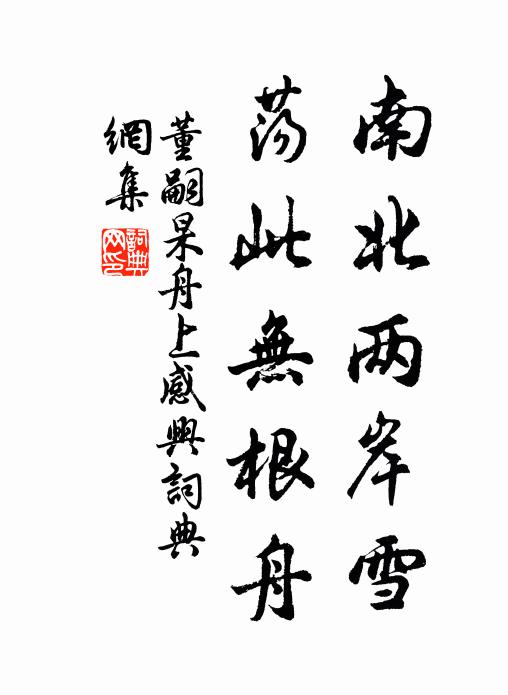 南北两岸雪
荡此無根舟
董嗣杲舟上感興詞典
網集
詞典
网印